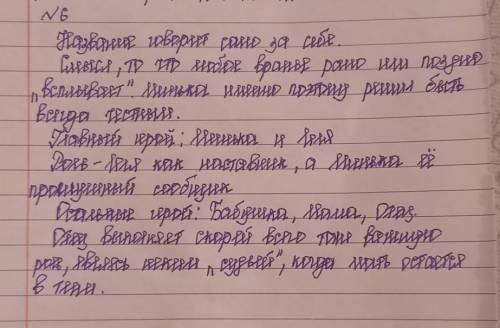 №6
Название говорит само за себя.
Смысл, то что любое враньё рано или поздно
„всплывает". Минька именно поэтому решил быть
всегда честным.
Главный герой: Минька и Лёля
Роль - Лёля как наставник, а Минька её
промушенный сообщник
Остальные герои: Бабушка, Мама, Отец.
Отец выполняет скорей всего тоже важную
роль, являясь неким „судьёй", когда мать остаётся
в тени.